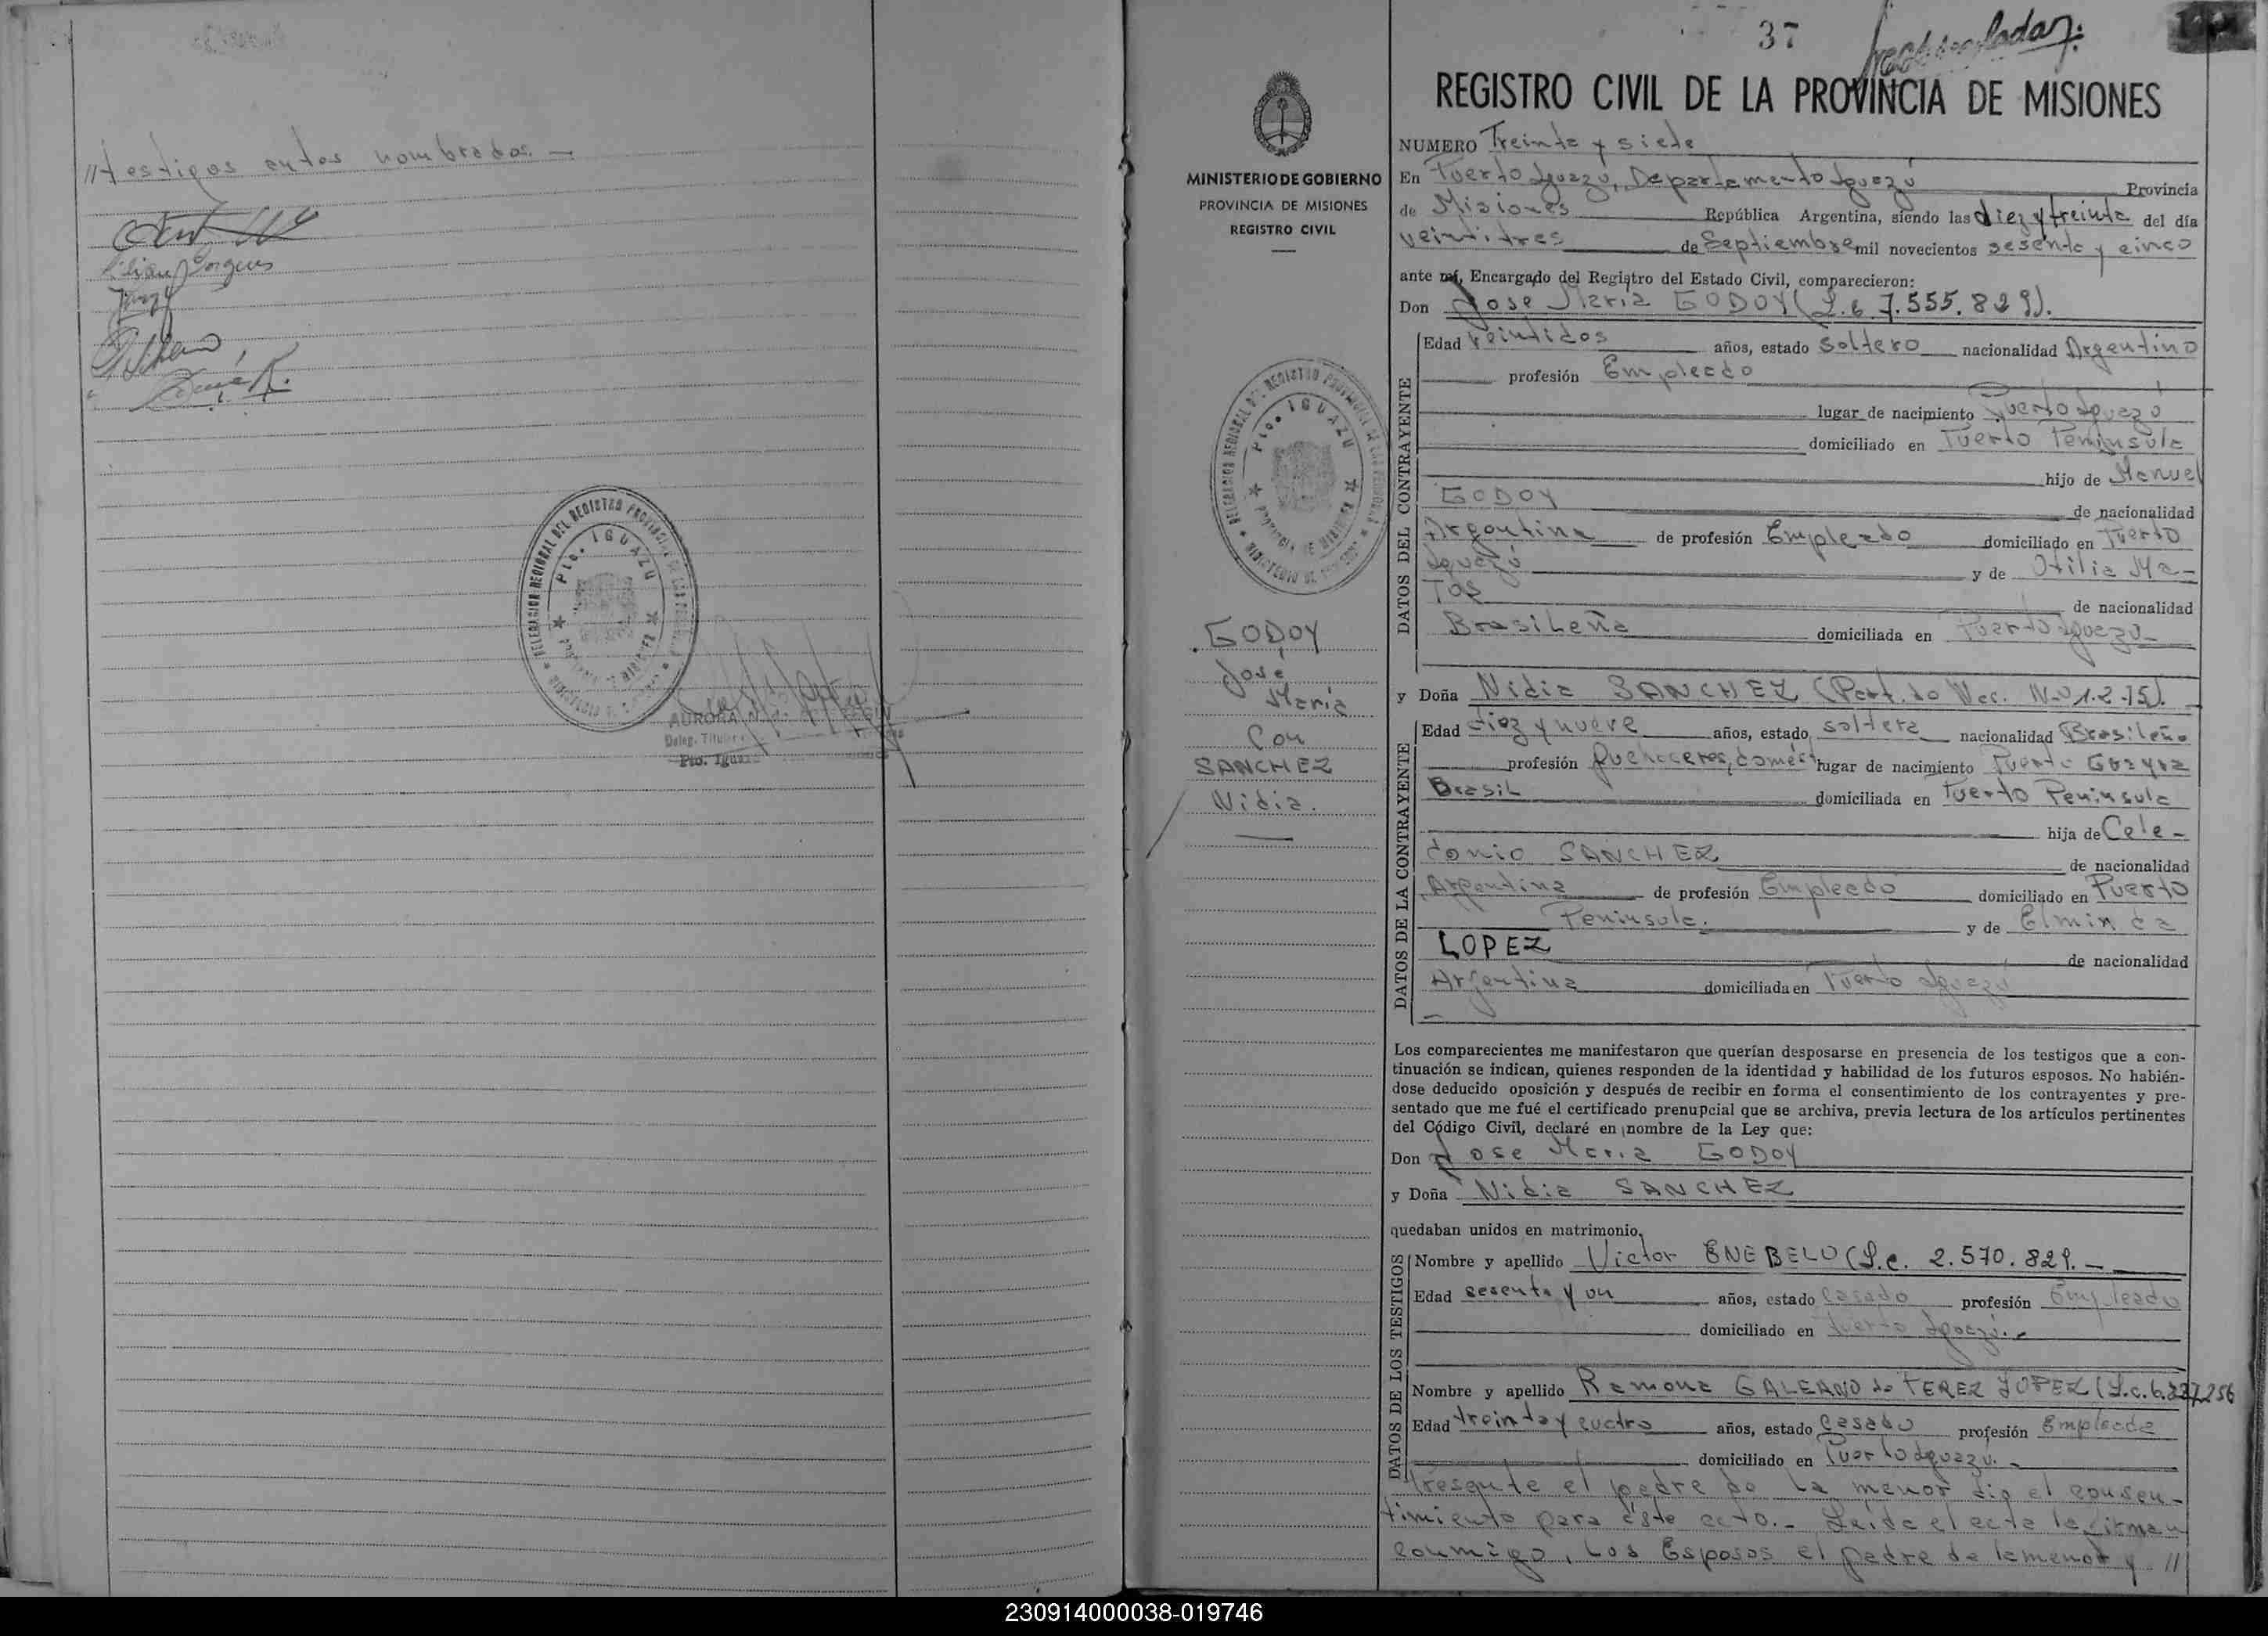 //testigos antes nombrados. —
DELEGACION REGIONAL DEL REGISTRO PROVINCIAL DE LAS PERSONAS
Pto. IGUAZU
PROVINCIA DE MISIONES
MINISTERIO DE GOBIERNO
AURORA
Deleg. Titular
Pto. Iguazú
37
MINISTERIO DE GOBIERNO
PROVINCIA DE MISIONES
REGISTRO CIVIL
DELEGACION REGIONAL DEL REGISTRO PROVINCIAL DE LAS PERSONAS
Pto. IGUAZU
PROVINCIA DE MISIONES
MINISTERIO DE GOBIERNO
GODOY
José
María
Con
SANCHEZ
Nidia.
REGISTRO CIVIL DE LA PROVINCIA DE MISIONES
NUMERO Treinta y siete
En Puerto Iguazú, Departamento Iguazú Provincia
de Misiones República Argentina, siendo las diez y treinta del día
veintitres de Septiembre mil novecientos sesenta y cinco
ante mí, Encargado del Registro del Estado Civil, comparecieron:
Don Jose Maria GODOY (L.e 7.555.829).
DATOS DEL CONTRAYENTE
Edad veintidos años, estado soltero nacionalidad Argentino
profesión Empleado
lugar de nacimiento Puerto Iguazú
domiciliado en Puerto Peninsula
hijo de Manuel
GODOY de nacionalidad
Argentina de profesión Empleado domiciliado en Puerto
Iguazú y de Otilia Ma-
TOS de nacionalidad
Brasileña domiciliada en Puerto Iguazú-
y Doña Nidia SANCHEZ (Part. de Nac. Nº 1.215).
DATOS DE LA CONTRAYENTE
Edad diez y nueve años, estado soltera nacionalidad Brasileña
profesión Quehaceres domést lugar de nacimiento Puerto
Brasil domiciliada en Puerto Peninsula
hija de Cele-
donio SANCHEZ de nacionalidad
Argentina de profesión Empleado domiciliado en Puerto
Peninsula. y de Elminda
LOPEZ de nacionalidad
Argentina domiciliada en Puerto Iguazú
Los comparecientes me manifestaron que querían desposarse en presencia de los testigos que a con-
tinuación se indican, quienes responden de la identidad y habilidad de los futuros esposos. No habién-
dose deducido oposición y después de recibir en forma el consentimiento de los contrayentes y pre-
sentado que me fué el certificado prenupcial que se archiva, previa lectura de los artículos pertinentes
del Código Civil, declaré en nombre de la Ley que:
Don Jose Maria GODOY
y Doña Nidia SANCHEZ
quedaban unidos en matrimonio.
DATOS DE LOS TESTIGOS
Nombre y apellido Victor ENEBELO (L.e. 2.570.829. —
Edad sesenta y un años, estado casado profesión Empleado
domiciliado en Puerto Iguazú.-
Nombre y apellido Ramona GALEANO de PEREZ LOPEZ (L.c. 6.227.256
Edad treinta y cuatro años, estado Casado profesión Empleada
domiciliado en Puerto Iguazú. -
Presente el padre de la menor dio el consen-
timiento para éste acto.- Leída el acta la firman
conmigo, los Esposos el padre de la menor y //
230914000038-019746